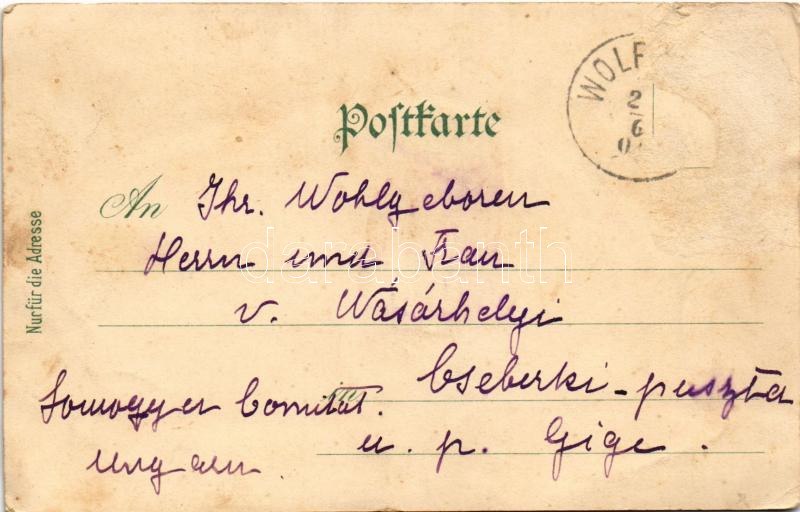 WOLF
2
6
Postkarte
An Ihr. Wohlgeboren
Herrn und Frau
v. Wásárhelyi
in Cseberki-puszta
Somogyer Comitat.
u. p. Gige.
Ungarn
Nur für die Adresse
darabanth